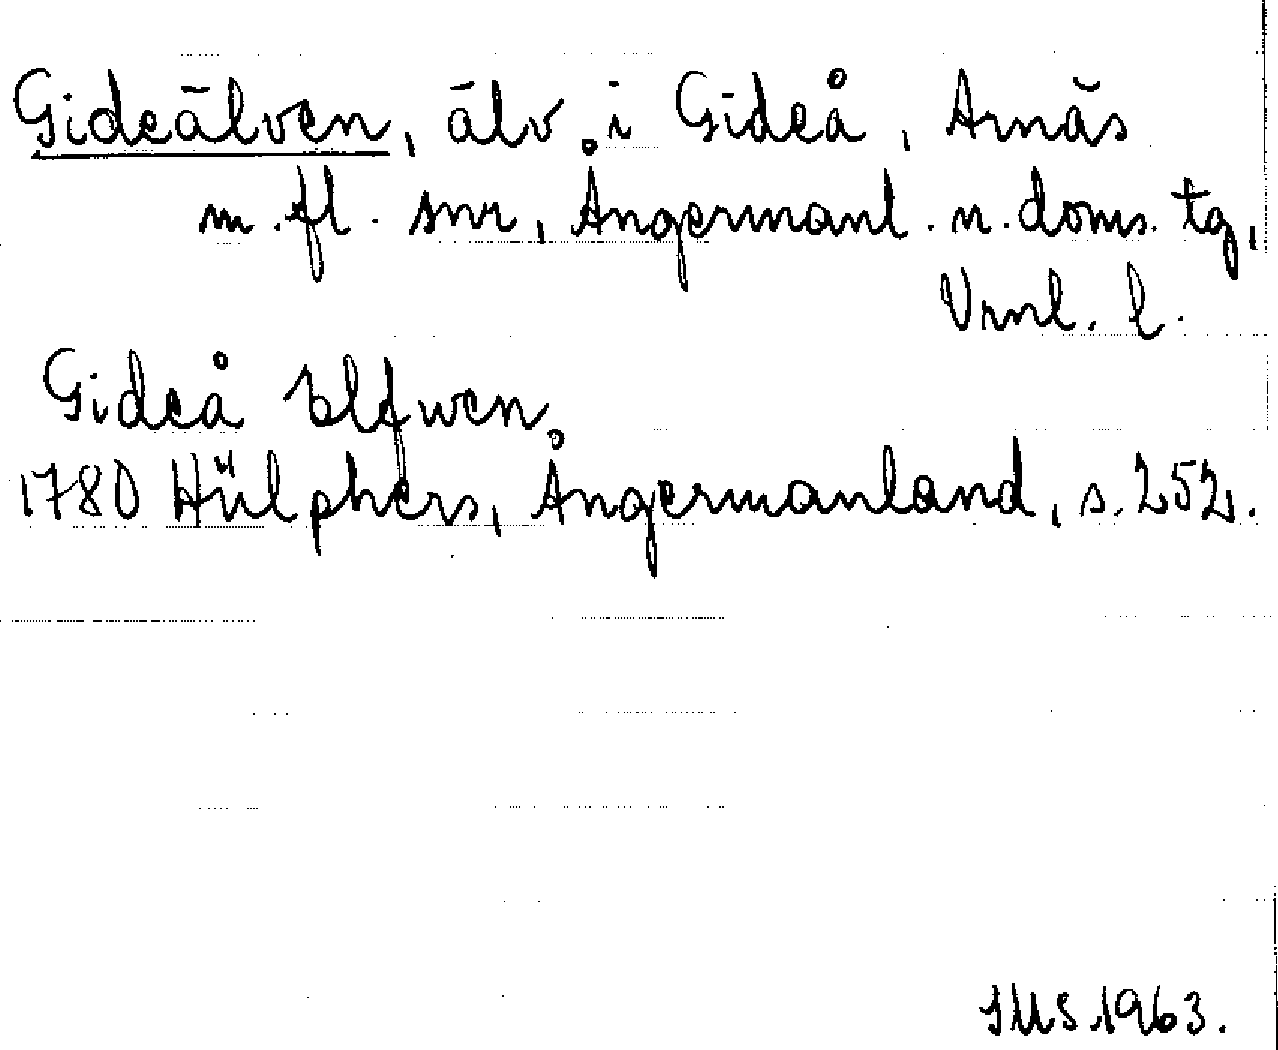 Gideälven, älv i Gideå, Arnäs
m.fl. snr, Ångermanl. n. doms. tg,
Vrnl. l.
Gideå Elfwen,
1780 Hülphers, Ångermanland, s. 252.
1963.